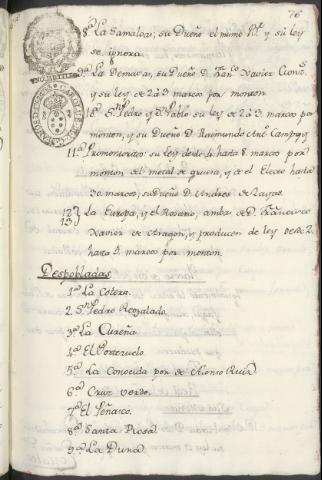 76
8ª La Gamaloas, su Dueño el mismo Bʳ y su ley
se ignora.
9ª La Demasias, su Dueño D. Franᶜᵒ Xavier
y su ley de 2 à 3 marcos por monton
10ª Sⁿ Pedro y Sⁿ Pablo su ley de 2 à 3 marcos por
monton, y su Dueño D. Raimundo Antᵒ
11ª Promontorio su ley de 4 hasta 8 marcos por
monton del metal de y el de hasta
30 marcos, su Dueño D. Andres de Zayas.
12 La Europa, y el Rosario, ambas de D. Francisco
13 Xavier de Aragon, y producen de ley desde 2,
hasta 5 marcos por monton.
Despobladas.
1ª La Cotera.
2 Sⁿ Pedro Regalado.
3ª La Cureña.
4ª El Portezuelo.
5ª La Conocida por de Alonso Ruiz.
6ª Cruz verde.
7ª El Peñasco.
8ª Santa Rosa.
9ª La Luna.